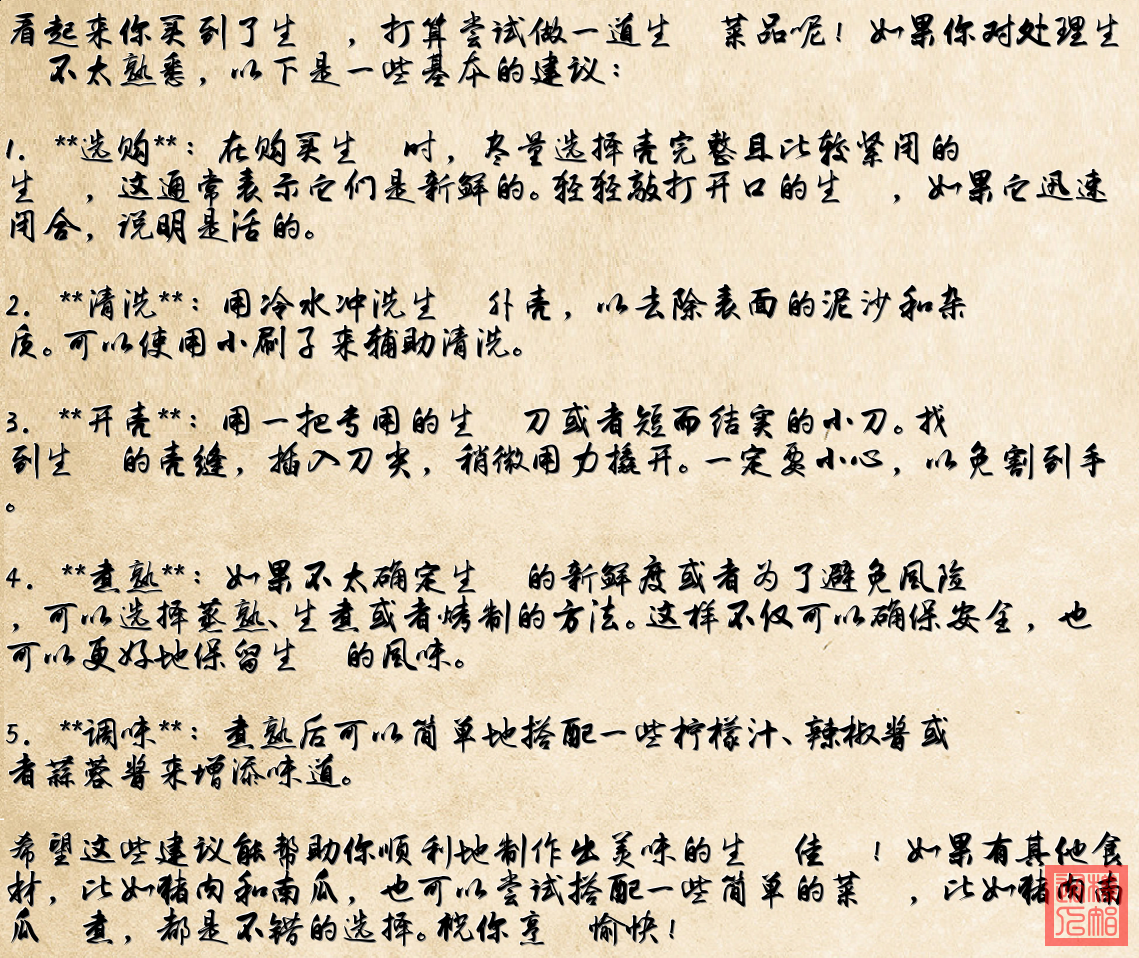 看起来你买到了生 ，打算尝试做一道生 菜品呢！如果你对处理生
不太熟悉，以下是一些基本的建议：
1. **选购**：在购买生 时，尽量选择壳完整且比较紧闭的
生 ，这通常表示它们是新鲜的。轻轻敲打开口的生 ，如果它迅速
闭合，说明是活的。
2. **清洗**：用冷水冲洗生 外壳，以去除表面的泥沙和杂
质。可以使用小刷子来辅助清洗。
3. **开壳**：用一把专用的生 刀或者短而结实的小刀。找
到生 的壳缝，插入刀尖，稍微用力撬开。一定要小心，以免割到手
。
4. **煮熟**：如果不太确定生 的新鲜度或者为了避免风险
，可以选择蒸熟、生煮或者烤制的方法。这样不仅可以确保安全，也
可以更好地保留生 的风味。
5. **调味**：煮熟后可以简单地搭配一些柠檬汁、辣椒酱或
者蒜蓉酱来增添味道。
希望这些建议能帮助你顺利地制作出美味的生 佳 ！如果有其他食
材，比如猪肉和南瓜，也可以尝试搭配一些简单的菜 ，比如猪肉南
瓜 煮，都是不错的选择。祝你烹 愉快！